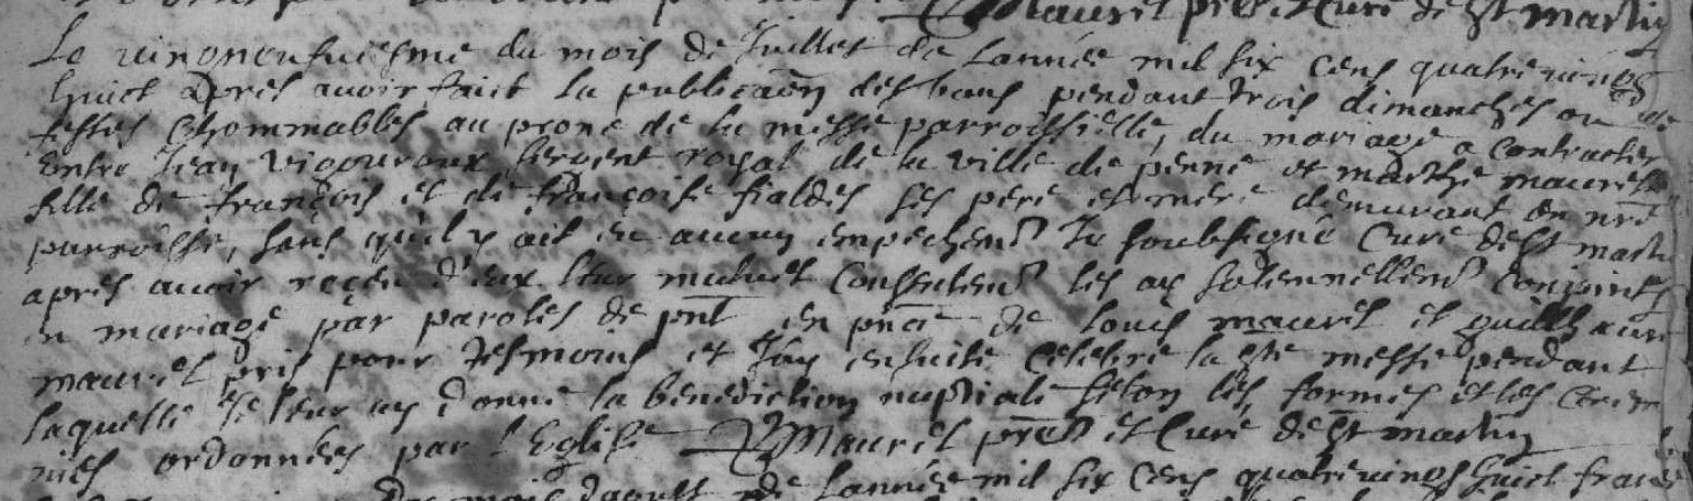 Maurel pbre et Curé de st martin
Le vingneufuiesme du mois de Juillet de Lannée mil six cens quatre vingt
huict apres auoir faict la publicaõn des bans pendant trois dimanches ou
festes chommables au prone de la messe parroissielle, du mariage a contracter
Entre Jean Vigouroux sergent royal de la ville de penne et marthe maurele
fille de françois et de françoise fialdes ses pere et mere demurant en nrẽ
parroisse, sans qu'il y ait eu aucun empechemt Je soubsigné Curé de st martin
apres auoir reçeu d'eux leur mutuel Consentemt les ay solemnellemt conjoints
en mariage par paroles de pnt en pnce de Louis maurel et guilhaume
maurel pris pour tesmoins et J'ay ensuite celebré la ste messe pendant
laquelle Je leur ay donné la benediction nuptiale selon les formes et les cerem
nies ordonnées par l'Eglise Maurel prẽt et Curé de st martin
du mois daoust de Lannée mil six cens quatre vingt huict